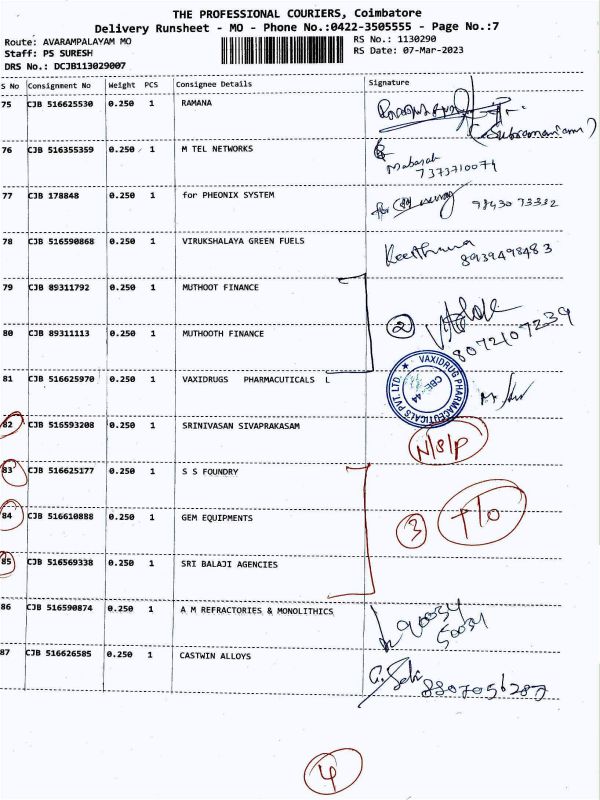 THE PROFESSIONAL COURIERS, Coimbatore
Delivery Runsheet - MO - Phone No.:0422-3505555 - Page No.:7
Route: AVARAMPALAYAM MO
RS No.: 1130290
Staff: PS SURESH
RS Date: 07-Mar-2023
DRS No.: DCJB113029007
S No Consignment No Weight PCS Consignee Details Signature
75 CJB 516625530 0.250 1 RAMANA
(Subramaniam)
76 CJB 516355359 0.250 1 M TEL NETWORKS
7373710071
77 CJB 178848 0.250 1 for PHEONIX SYSTEM
98430 73332
78 CJB 516590868 0.250 1 VIRUKSHALAYA GREEN FUELS
Keerthana
8939498483
79 CJB 89311792 0.250 1 MUTHOOT FINANCE
2
80 CJB 89311113 0.250 1 MUTHOOTH FINANCE
8072107239
81 CJB 516625970 0.250 1 VAXIDRUGS PHARMACUTICALS L
VAXIDRUG PHARMACEUTICALS PVT. LTD.
CBE-44
82 CJB 516593208 0.250 1 SRINIVASAN SIVAPRAKASAM
N/S/P
83 CJB 516625177 0.250 1 S S FOUNDRY
84 CJB 516610888 0.250 1 GEM EQUIPMENTS
3 T/O
85 CJB 516569338 0.250 1 SRI BALAJI AGENCIES
86 CJB 516590874 0.250 1 A M REFRACTORIES & MONOLITHICS
90034
50034
87 CJB 516626585 0.250 1 CASTWIN ALLOYS
8807056287
4